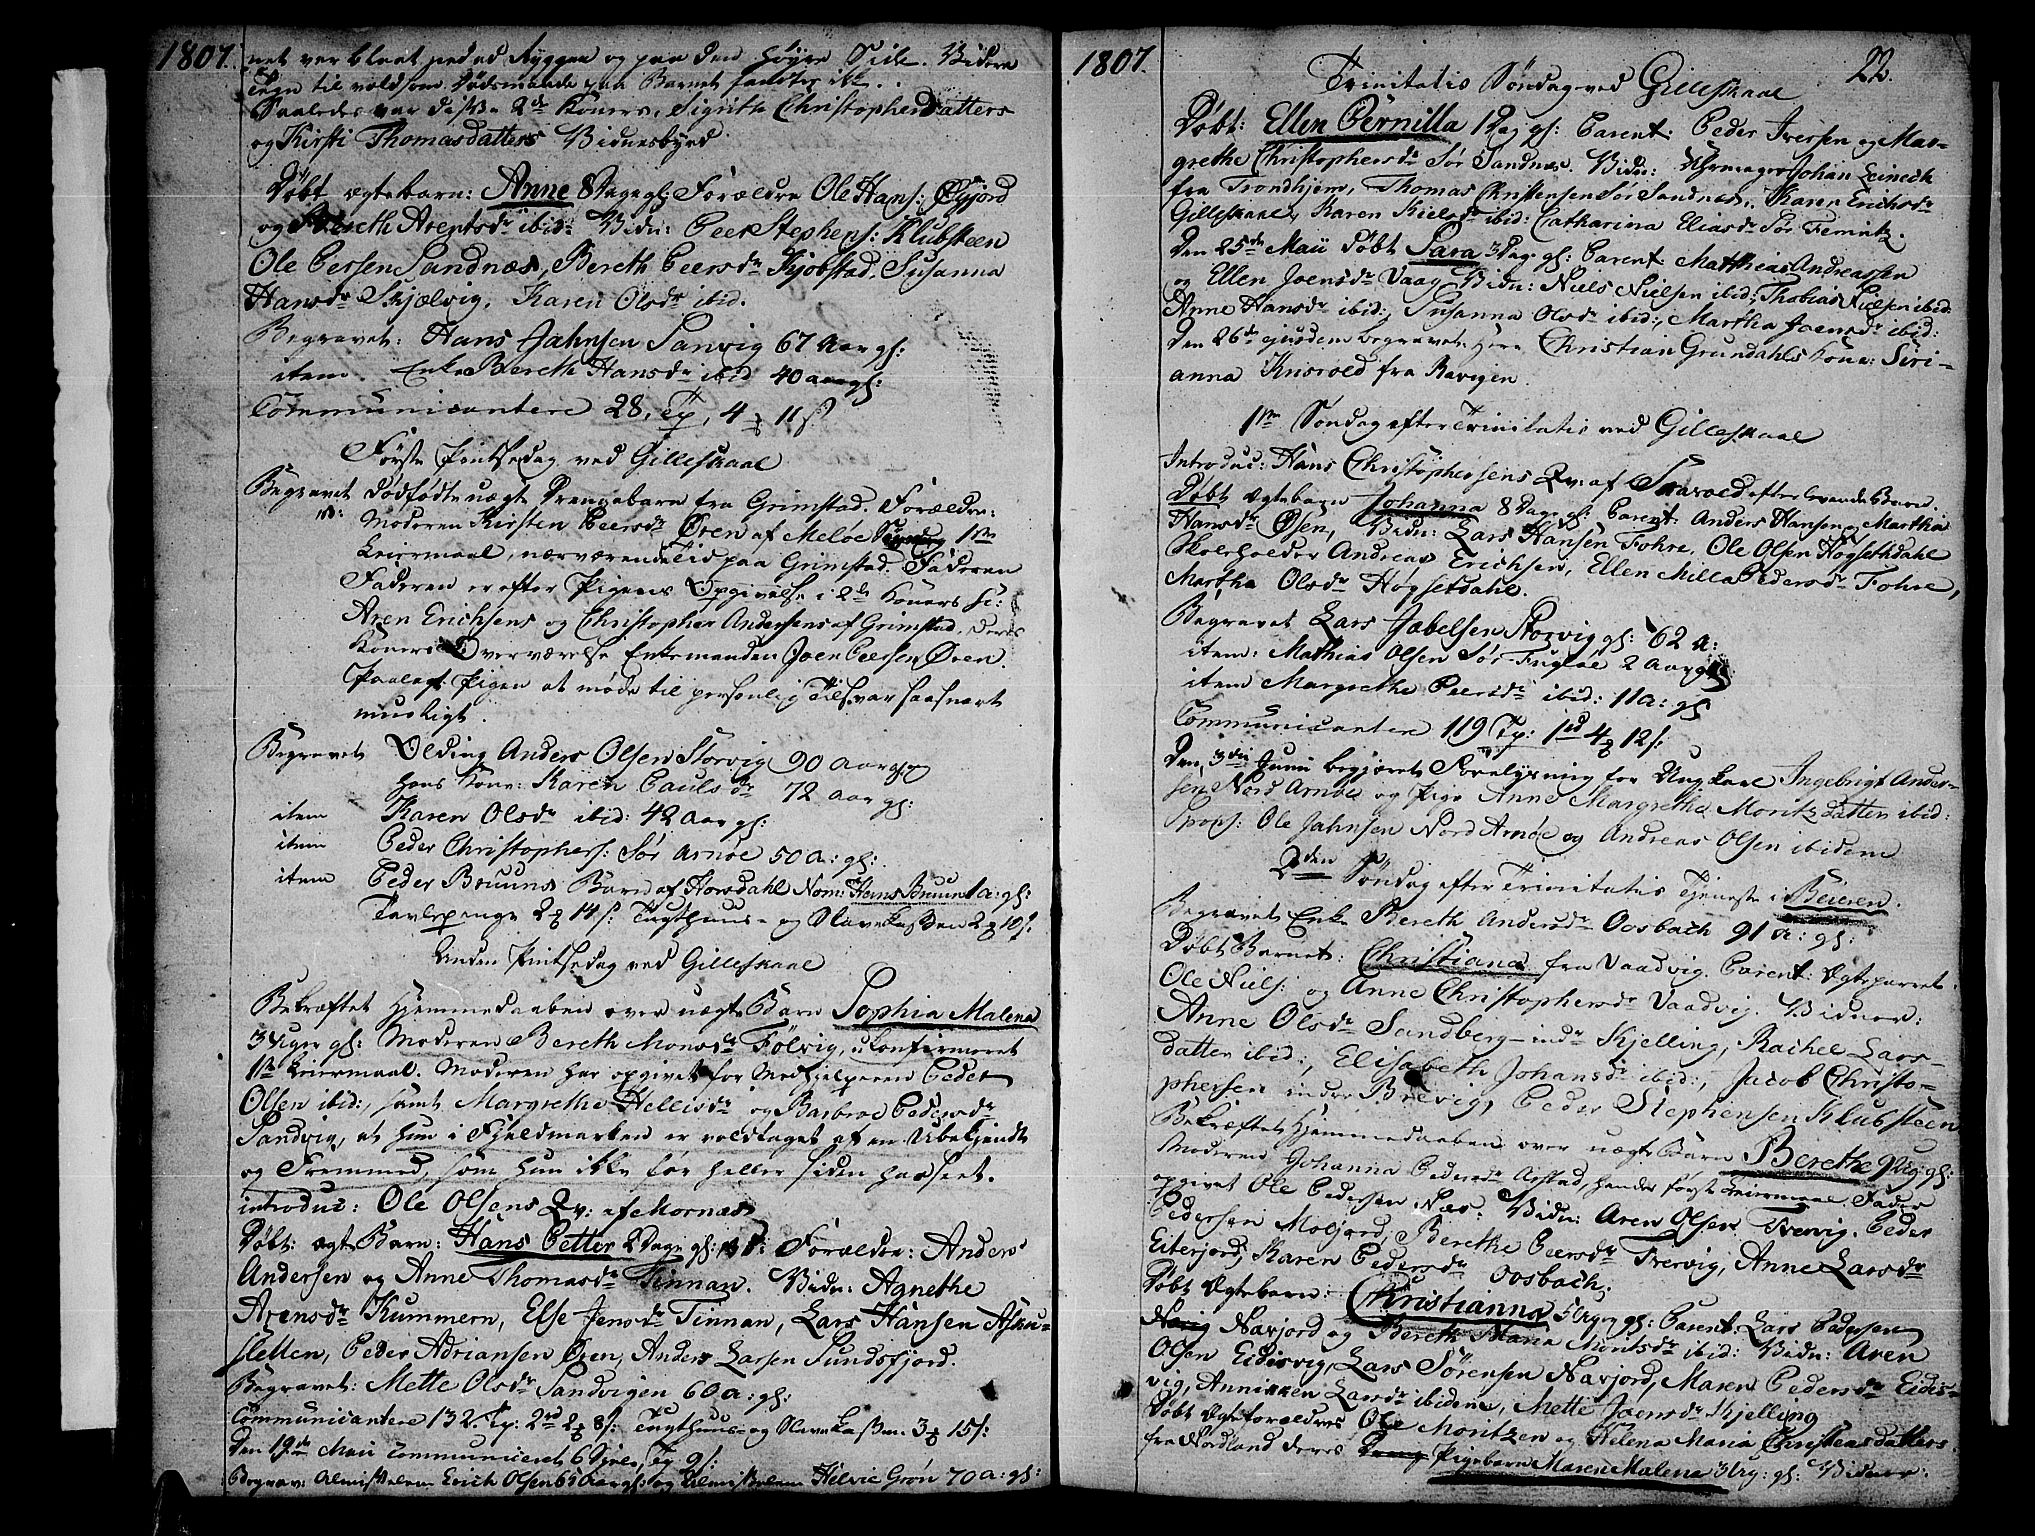 1807. net var blaat ned ad Ryggen og paa den høyre Side. Videre
Tegn til voldsom Dødsmaade paa Barnet fandtes ikke.
Saaledes var disse 2de Koners, Sigrith Christophersdatters
og Kirsti Thomasdatters Vidnesbyrd
Døbt ægtebarn: Anne 8 Dage gl: Forældre Ole Hans:
og Bereth Arentsdr ibid: Vidn: Peer Stephens: Klubsteen
Ole Persen Sandnæs, Bereth Peersdr Kjøbstad, Susanna
Hansdr Skjælvig, Karen Olsdr ibid.
Begravet: Hans Jahnsen Sanvig 67 Aar gl:
item. Enke Bereth Hansdr ibid 40 aar gl:
Communicantere 28, Tp, 4 11 s
Første Pintsedag ved Gilleskaal
Begravet dødfødte uægte Drengebarn fra Grimstad. Forældre:
Moderen Kirsten Peersdr Øren af Meløe 1ste
Leiermaal, nærværende Tid paa Grimstad. Faderen
Faderen er efter Pigens Opgivelse i 2de Koners
Aren Erichsens og Christopher Andersens af Grimstad, deres
Koners Overværelse Enkemanden Joen Peersen Øren.
Paalagt Pigen at møde til personlig Tilsvar saasnart
mueligt.
Begravet Olding Anders Olsen Storvig 90 aar gl
hans Kone: Karen Paulsdr 72 aar gl:
item Karen Olsdr ibid: 42 aar gl:
item Peder Christophers: Sør Arnøe 50 a: gl:
item Peder Bruuns Barn af Horsdahl Nom: Hans Bruun 1 a: gl:
Tavlepenge 2 14 s: Tugthuus- og Slavekassen 2 10 s
Anden Pintsedag ved Gilleskaal
Bekræftet Hjemmedaaben over uægte Barn Sophia Malena
3 Uger gl: Moderen Bereth Monsdr Følvig, uconfirmeret
1ste Leiermaal. Moderen har opgivet for Medhjelperen Peder
Olsen ibid:, samt Margrethe Hellisdr og Barbroe Pedersdr
Sandvig, at hun i Fjeldmarken er voldtaget af en Ubekjendt
og Fremmed, som hun ikke før heller siden har seet.
introduc: Ole Olsens Qv: af Mornæs
Døbt: ægte Barn: Hans Petter 2 Dage gl: Forældre: Anders
Andersen og Anne Thomasdr Finnan. Vidn: Agnethe
Arensdr Kummern, Else Jensdr Tinnan, Lars Hansen Asku-
sletten, Peder Adriansen Øren, Anders Larsen Sundsfjord.
Begravet: Mette Olsdr Sandvigen 60 a: gl:
Communicantere 132 Tp: 2rd 2 8 s: Tugthuus- og Slavekassen 3 15 s:
den 19de Maii Communiceret 6 Syge, Tp 9 s:
Begrav: Almisselem Erich Olsen 65 aar gl: og Almisselem Helvie Grøn 70 a: gl:
1807. 22.
Trinitatis Søndag ved Gilleskaal
Døbt: Ellen Pernilla 1 Dag gl: Parent: Peder Iversen og Mar-
grethe Christophersdr Sør Sandnæs. Vidn: Johan Leineck
fra Trondhjem, Thomas Christensen Sør Sandnæs, Karen Erichsdr
Gilleskaal, Karen Nielsdr ibid: Catharina Eliasdr Sør
Den 25de Maii døbt Sara 3 Dag: gl: Parent Matthias Andreassen
og Ellen Joensdr Vaag Vidn: Niels Nielsen ibid; Thobias Nielsen ibid:
Anne Hansdr ibid:, Susanna Olsdr ibid:, Martha Joensdr ibid:
Den 26de ejusdem begravet: Herr Christian Grundahls Kone: Siri-
anna Knsvold fra Kavigen.
1ste Søndag efter Trinitatis ved Gilleskaal
Introduc: Hans Christophersens Qv: af efter levende Barn.
Døbt Ægtebarn Johanna 8 Dage gl: Parent: Anders Hansen og Martha
Hansdr Øsen, Vidn: Lars Hansen Fohre, Ole Olsen Høgsethdahl
Skoleholder Andreas Erichsen, Ellen Milla Pedersdr Fohre,
Martha Olsdr Høgsetdahl.
Begravet Lars Jæbelsen Storvig gl: 62 a:
item: Mathias Olsen Sør Fugløe 2 Aar gl
item Margrethe Peersdr ibid: 11 a: gl
Communicantere 119 Tp: 1rd 4 12 s:
Den 3die Junii begjæret Forelysning for Ungkarl Ingebrigt Ander-
sen, Nord Arnøe og Pige Anne Margrethe Moritzdatter ibid:
Spons: Ole Jahnsen Nord Arnøe og Andreas Olsen ibidem
2den Søndag efter Trinitatis Tjeneste i Beieren.
Begravet Enke Bereth Andersdr Oosbach 91 a: gl:
Døbt Barnet: Christiana fra Vaadvig. Parent: Ægteparret
Ole Niels: og Anne Christophersdr Vaadvig. Vidner:
Anne Olsdr Sandberg - indr Skjelling, Rachel Lars-
datter ibid:, Elisabeth Johansdr ibid:, Jacob Christo-
phersen inder Brevig, Peder Stephensen Klubsteen
Bekræftet Hjemmedaaben over uægte Barn Berethe 9 Ug: gl:
Moderen Johanna Pedersdr Arstad, hendes første Leiermaal. Fader
opgivet Ole Pedersen Næs: Vidn: Aren Olsen Trervig. Peder
Pedersen Moljord, Berethe Peersdr Trervig, Anne Larsdr
Eiterjord, Karen Pedersdr Oosbach.
Døbt Ægtebarn: Christianna 5 Uger gl: Parent: Lars Pedersen
Navjord og Bereth Maria Montsdr ibid: Vidn: Aren
Olsen Eidisvig, Lars Sørensen Navjord, Maren Pedersdr Eidis-
vig, Annikken Larsdr ibidem, Mette Joensdr Skjelling
Døbt Ægteforældres Ole Moritzen og Helena Maria Christensdatters
fra Nordland deres Pigebarn Maren Malena 3 Ug: gl: Vidner: